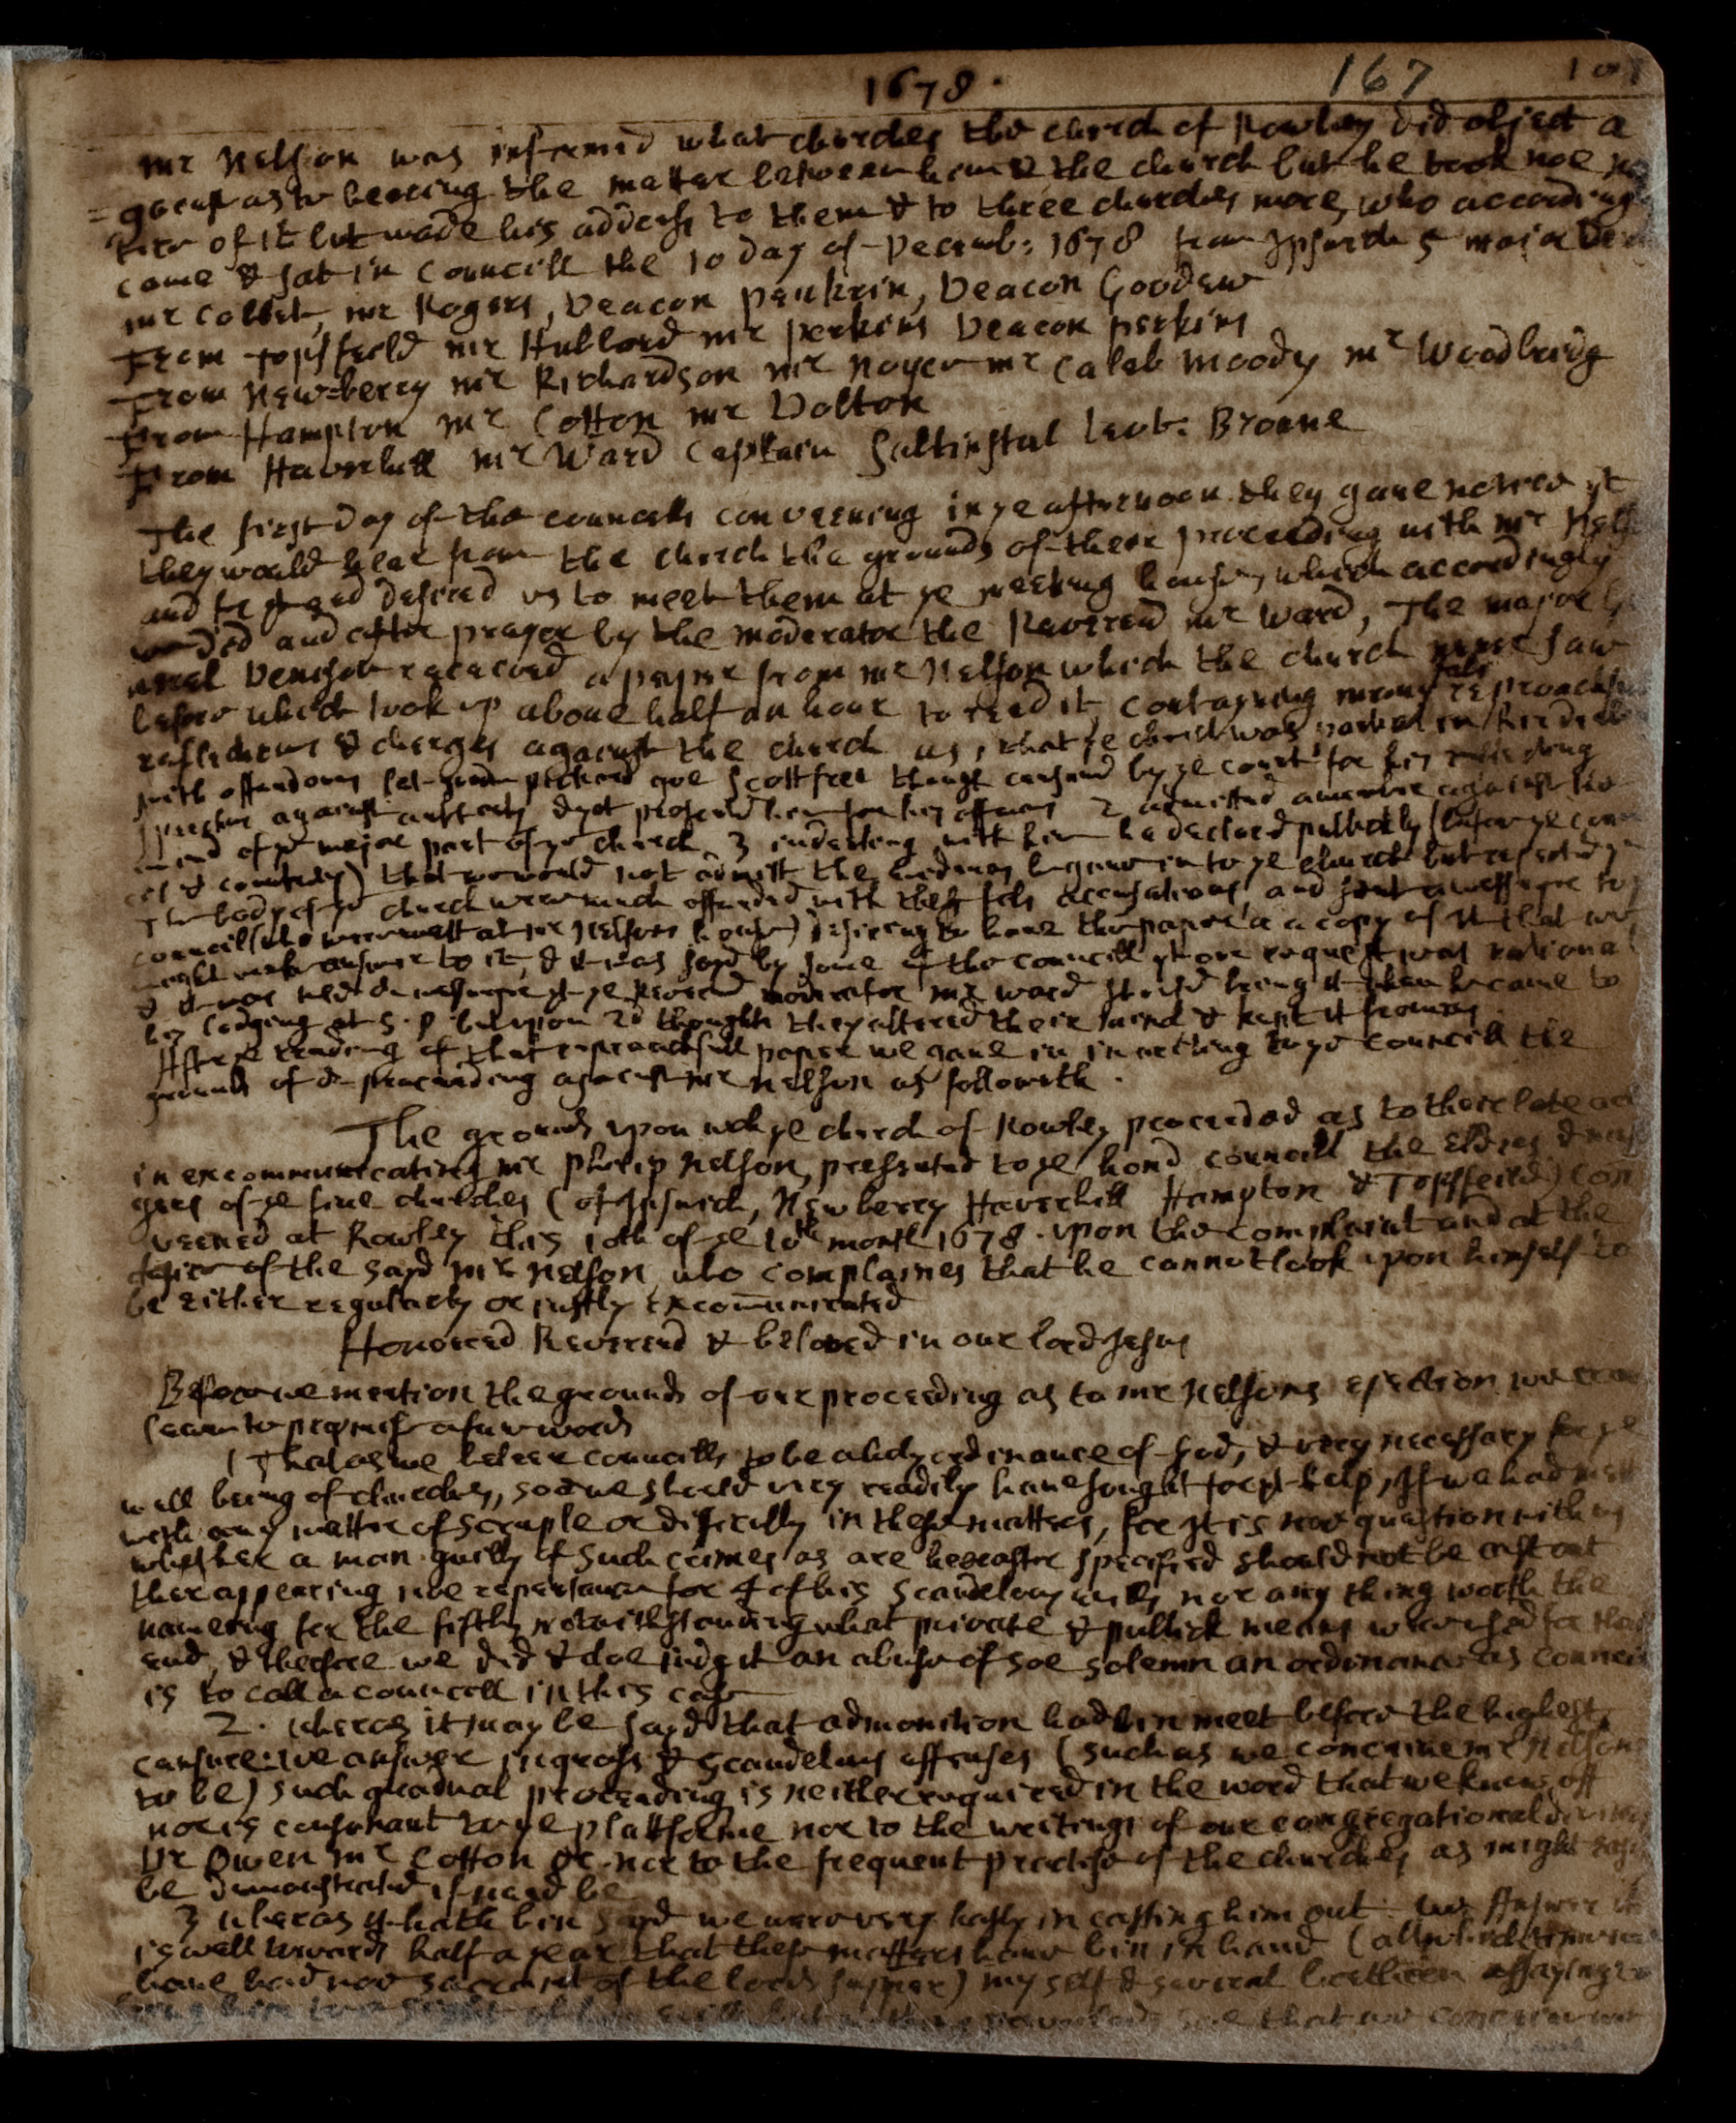 1678 .
167
mr Nelson was informed what churches the church of Rowley did object a
= gainst as to heareing the matter between him & the church but he took noe no
tice of it but made his addresse to them & to three churches more, who according
came & sat in Councill the 10 day of Decemb: 1678 from Ipswich 5 major Deni
mr Cobbet, mr Rogers, Deacon Penkrin, Deacon Goodew
From Topsfeild mr Hubbord mr perkins Deacon perkins
From Newberry mr Richardson mr Noyes mr Caleb Moody mr Woodbridg
From Hampton mr Cotton mr Dolton
From Haverhill mr Ward Captain Saltinstal Leut: Browne
The first day of the councells conveening in ye afternoon they gave notice yt
they would hear from the church the grounds of their proceeding with mr Nels
and desired us to meet them at ye meeting house, which accordingly
we did and after prayer by the moderator the Reverend mr Ward, The major Ge
neral Denison received a paper from mr Nelson which the church never saw
before which took up above half an hour to read it, contayning many fals reproachfu
reflections & charges against the church as, that ye church was partial in
with offendors let goe scottfree though censured by ye court for his
against authority & yet 2 admitted a member against the
mind of ye major part of ye church 3 in dealing with him he declared publickly (before ye
& countrey) that would not admit the into ye church but
The body of ye church were much offended with these fals accusations, and sent a messenger to ye
council (who were mett at mr Nelsons house) desireing to have the paper or a copy of it that we
might make answer to it, & it was sayd by some of the councill yt our request was rational
& ye Reverend moderator mr Ward should bring it when he came to
his lodging at S. P but upon 2d thoughts they altered their mind & kept it from us
After ye reading of that reproachfull paper we gave in in writing to ye councill the
grounds of or proceeding against mr Nelson as followeth .
The grounds upon wch ye church of Rowley proceeded as to their late act
in excommunicating mr phillip Nelson, presented to ye hond councill the Elders & messen
gers of ye five churches (of Ipswich, Newberry Haverhill Hampton & Topsfeild) con
veened at Rowley this 10th of ye 10th month 1678 . upon the complaint and at the
desire of the sayd mr Nelson who complaines that he cannot look upon himself to
be either regularly or justly excom̄unicated
Honored Reverend & beloved in our lord Jesus
Before we mention the grounds of our proceeding as to mr Nelsons ejection we crave
leave to premise a few words
1 That as we beleeve councills to be a holy ordinance of God, & very necessary for ye
well being of churches, soe we should very readily have sought for yt help, If we had mett
with any matter of scruple or dificulty in these matters, for It is noe question with us
whether a man guilty of such crimes as are hereafter specified should not be cast out
ther appearing noe repentance for 4 of his scandelous evills, nor any thing worth the
nameing for the fifth, notwithstanding what private & publick means was used for that
end, & therfore we did & doe judg it an abuse of soe solemn an ordinance as councill
is to call a councell in this case
2 . wheras it may be sayd that admonition had bin meet before the highest
censure: we answer in gross & scandelous offenses (such as we conceive mr Nelsons
to be) such gradual proceeding is neither required in the word that we know off
nor is consonant to ye plattforme nor to the writings of our congregational divines
Dr Owen mr Cotton &c. nor to the frequent practise of the churches as might easily
be demonstrated if need be
3 wheras it hath bin sayd we were very hasty in casting him out: we Answer it
is well towards half a year that these matters have bin in hand (all which time we
have had noe sacrament of the lords supper) my self & several brethren assaying to
bring him to a sight of his evill but that we conceive